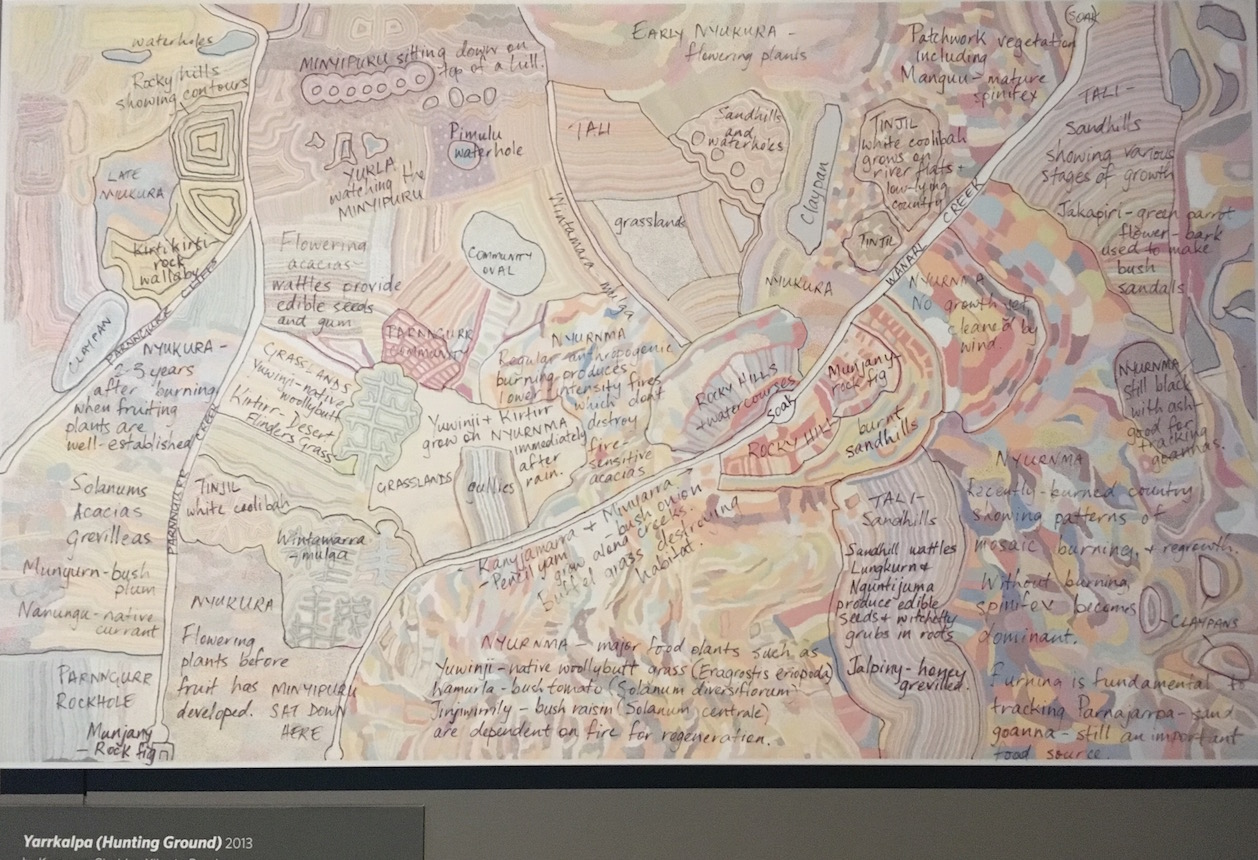 waterholes
Rocky hills
showing contours
MINYIPURU sitting down on
top of a hill.
EARLY NYUKURA -
flowering plants
Patchwork vegetation
including
Manguu - mature
spinifex
SOAK
LATE
NYUKURA
YURLA
watching the
MINYIPURU
Pimulu
waterhole
TALI
Sandhills
and
waterholes
Claypan
TINJIL
white coolibah
grows on
river flats +
low-lying
country
TALI -
Sandhills
showing various
stages of growth
Kirti kirti -
rock
wallaby
PARNNGURR CLIFFS
CLAYPAN
Flowering
acacias -
wattles provide
edible seeds
and gum
COMMUNITY
OVAL
Wintamara mulga
grasslands
TINJIL
WANARL CREEK
Jakapiri - green parrot
flower - bark
used to make
bush
sandals
NYUKURA
NYUKURA -
2-5 years
after burning
when fruiting
plants are
well-established
PARNNGURR CREEK
GRASSLANDS
Yuwinji - native
woollybutt
Kirtirr - Desert
Flinders Grass
PARNNGURR
Community
NYURNMA
Regular anthropogenic
burning produces
lower intensity fires
which don't
destroy
fire-
sensitive
acacias
Yuwinji + Kirtirr
grow on NYURNMA
immediately
after
rain.
ROCKY HILLS
+ watercourses
SOAK
Munjany -
rock fig
ROCKY HILL
burnt
sandhills
NYURNMA
No growth yet
cleaned by
wind.
NYURNMA
still black
with ash -
good for
tracking
goannas.
GRASSLANDS
Gullies
Solanums
Acacias
Grevilleas
Mungurn - bush
plum
Nanungu - native
currant
TINJIL
white coolibah
Wintamarra
- mulga
Kanyjamarra + Minyarra
- Pencil yam - bush onion
grow along creeks.
Buffel grass destroying
habitat.
TALI -
Sandhills
Sandhill wattles
Lungkurn +
Nguntijuma
produce edible
seeds + witchetty
grubs in roots
Jalpiny - honey
grevillea.
NYURNMA
Recently-burned country
showing patterns of
mosaic burning, + regrowth.
Without burning,
spinifex becomes
dominant.
CLAYPANS
Burning is fundamental to
tracking Parnajarrpa - sand
goanna - still an important
food source.
NYUKURA
Flowering
plants before
fruit has
developed.
MINYIPURU
SAT DOWN
HERE
PARNNGURR
ROCKHOLE
Munjany
- Rock fig
NYURNMA - major food plants such as
Yuwinji - native woollybutt grass (Eragrostis eriopoda)
Wamurla - bush tomato (Solanum diversiflorum)
Jinjiwirrily - bush raisin (Solanum centrale)
are dependent on fire for regeneration.
Yarrkalpa (Hunting Ground) 2013